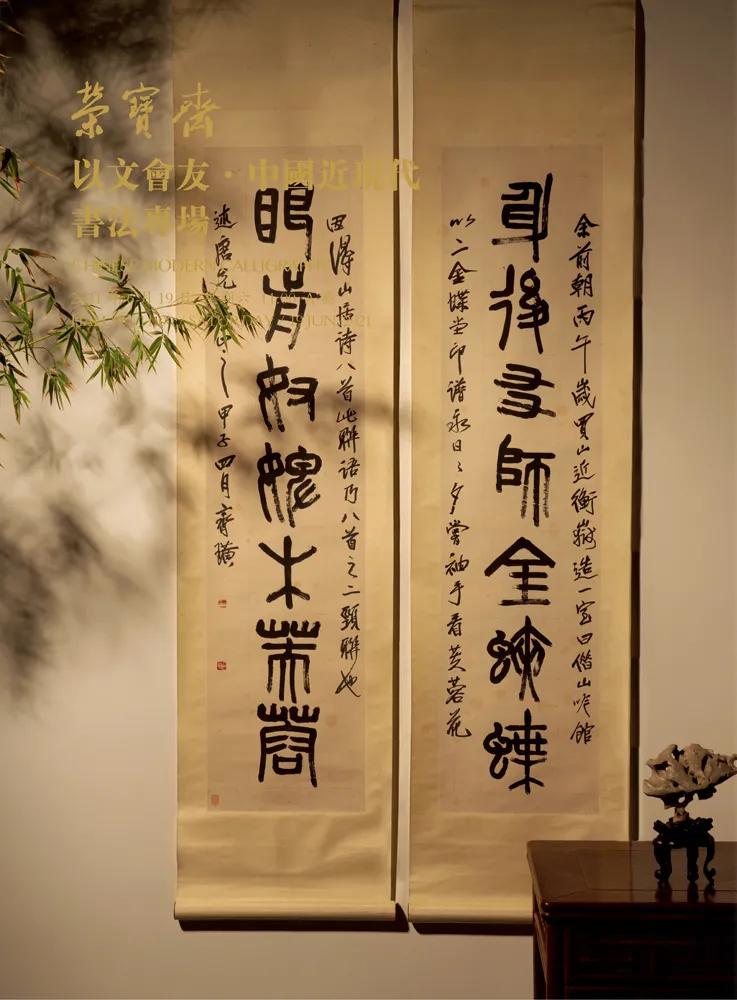 榮寶齋
以文會友·中國近現代
書法專場
CHINESE MODERN CALLIGRAPHY
19 JUNE 2021
余前朝丙午歲買山近衡嶽造一室曰借山吟館
身後友師金蛺蝶
以二金蝶堂印譜永日〻夕嘗袖手看芙蓉花
因得山居詩八首此聯語乃八首之二頸聯也
眼前奴婢木芙蓉
述唐先生正之 甲子四月 齊璜